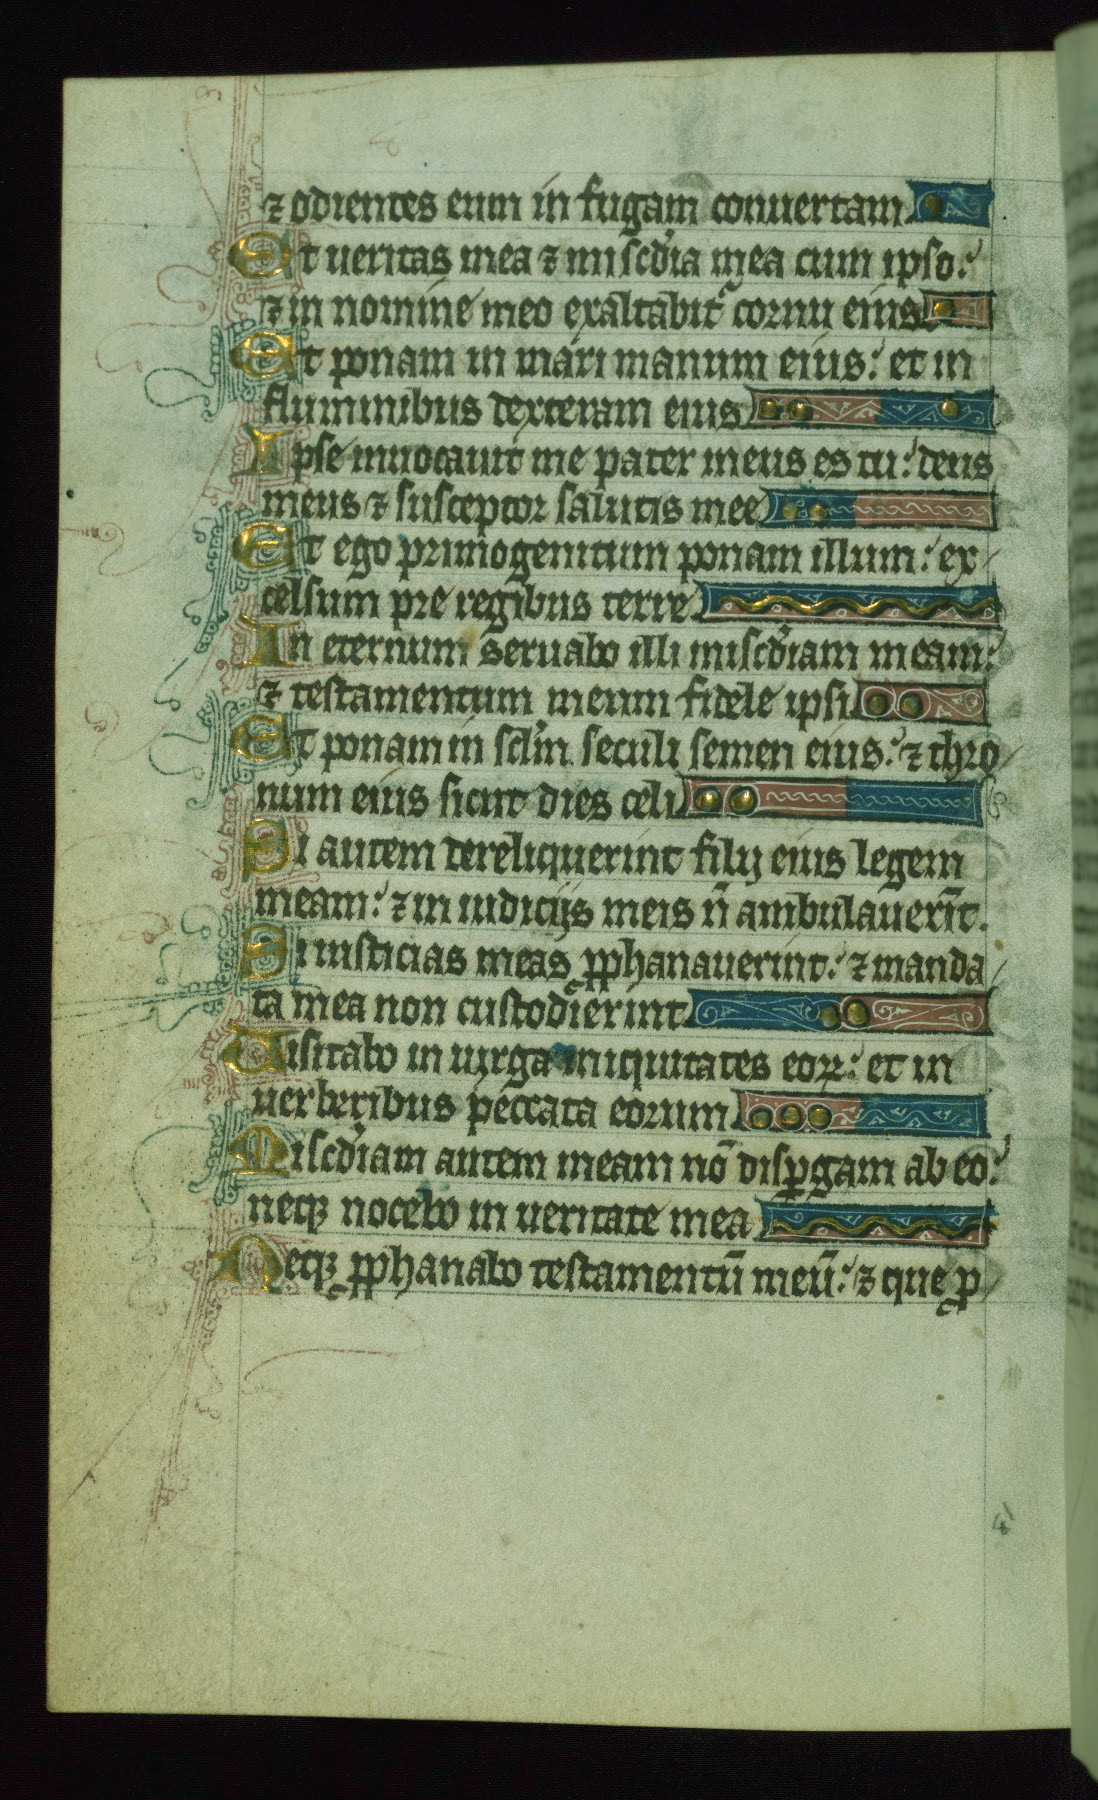 ⁊ odientes eum in fugam conuertam
Et ueritas mea ⁊ misc̄dia mea cum ipso:
⁊ in nomine meo exaltabit᷑ cornu eius
Et ponam in mari manum eius: et in
fluminibus dexteram eius
Ipse inuocauit me pater meus es tu: deus
meus ⁊ susceptor salutis mee
Et ego primogenitum ponam illum: ex
celsum pre regibus terre
In eternum seruabo illi misc̄diam meam:
⁊ testamentum meum fidele ipsi
Et ponam in sclm̄ seculi semen eius: ⁊ thro
num eius sicut dies celi
Si autem dereliquerint filij eius legem
meam: ⁊ in iudicijs meis n̄ ambulauerīt.
Si iusticias meas ꝓphanauerint: ⁊ manda
ta mea non custodierint
Uisitabo in uirga iniquitates eoꝝ: et in
uerberibus peccata eorum
Misc̄diam autem meam nō disꝑgam ab eo:
neqꝫ nocebo in ueritate mea
Neqꝫ ꝓphanabo testamentū meū: ⁊ que ꝓ